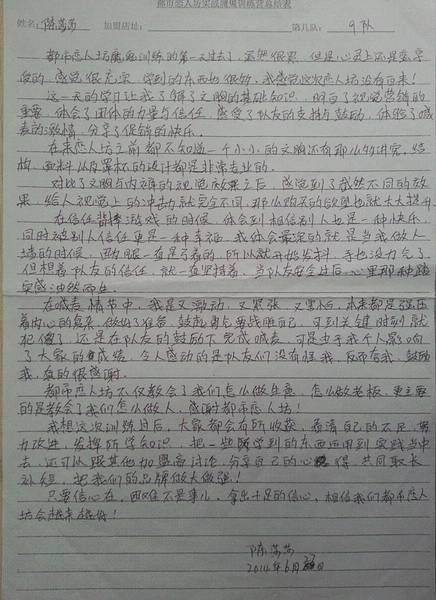 都市恋人坊实战魔鬼训练营总结表
姓名:陈莎莎 加盟店址: 第几队: 9队
都市恋人坊魔鬼训练的第一天过去了,虽然很累,但是心灵上还是享
受的,感觉很充实,学到的东西也很多,我感觉这次恋人坊没有白来!
这一天的学习让我了解了文胸的基础知识,明白了视觉营销的
重要,体会了团体的力量与信任,感受了队友的支持与鼓励,体验了喊
麦的激情,分享了促销的快乐。
在来恋人坊之前都不知道一个小小的文胸还有那么多讲究,结
构、面料以及罩杯的设计都是非常专业的。
对比了文胸与内裤的视觉效果之后,感觉到了截然不同的效
果,给人视觉上的冲击就完全不同,那么购买的欲望也就大大提升。
在信任背摔游戏的时候,体会到相信别人也是一种快乐,
同时被别人信任更是一种幸福,我体会最深的就是当我做人
墙的时候,因为腿一直是弓着的,所以就开始发抖,手也没力气了
但想着队友的信任,就一直坚持着,当队友安全过后,心里那种踏
实感油然而生。
在喊麦情节中,我是又激动,又紧张,又害怕,本来都是强压
着内心的复杂,做好了准备,鼓起勇气要战胜自己,可到关键时刻就
犯傻了,还是在队友的鼓励下完成喊麦,可是由于我个人影响
了大家的成绩,令人感动的是队友们没有怪我,反而安慰我,鼓励
我,真的很感谢。
都市恋人坊不仅教会了我们怎么做生意,怎么做老板,更主要
的是教会了我们怎么做人,感谢都市恋人坊!
我想这次训练过后,大家都会有所收获,看清自己的不足,努
力改进,发挥所学知识,把一些所学到的东西运用到实践当中
去,还可以跟其他加盟商讨论,分享自己的心得,共同取长
补短,把我们的品牌做大做强!
只要信心在,困难不是事儿,拿出十足的信心,相信我们都市恋人
坊会越来越好!
陈莎莎
2014年6月日